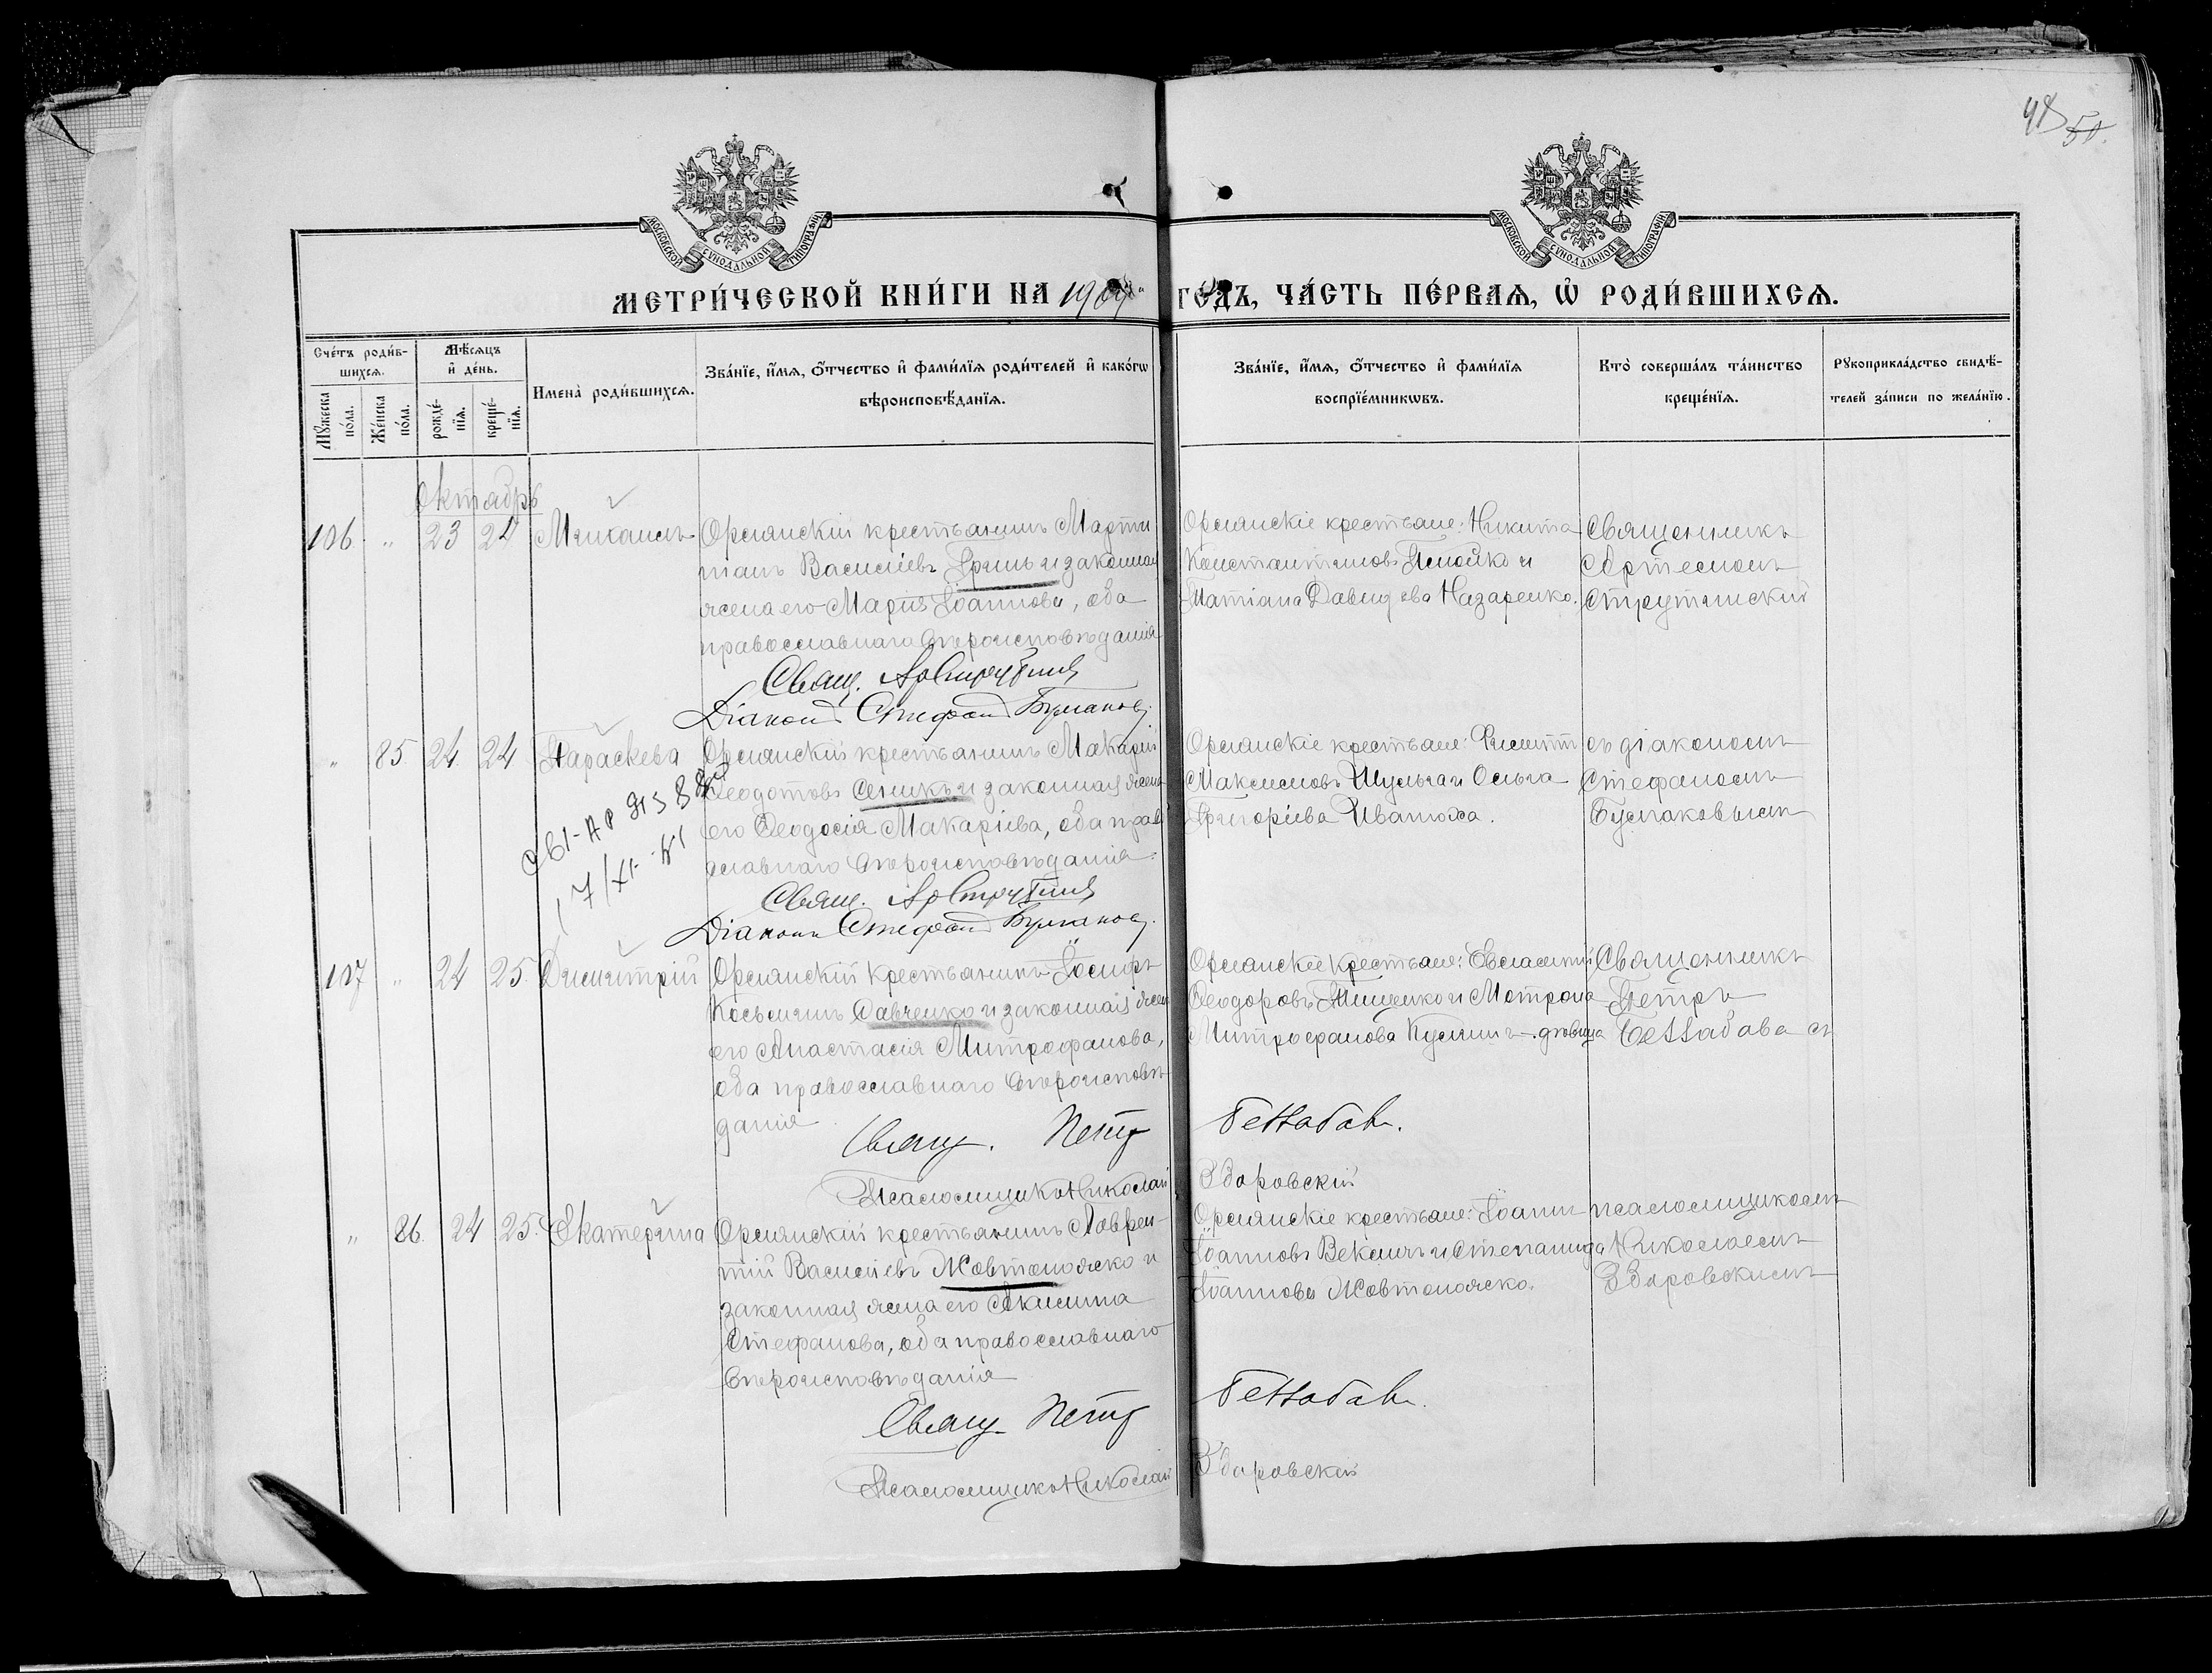 48 50.
МОСКОВСКОЙ СѴНОДАЛЬНОЙ ТИПОГРАФІИ
МОСКОВСКОЙ СѴНОДАЛЬНОЙ ТИПОГРАФІИ
МЕТРИ́ЧЕСКОЙ КНИ́ГИ НА 1909 ГО́ДЪ, ЧА́СТЬ ПЕ́РВАѦ, Ѡ҆ РОДИ́ВШИХСѦ.
Сче́тъ роди́в-
шихсѧ.
Мѣ́сѧцъ
и҆ де́нь.
Мꙋ́жеска
по́ла.
Же́нска
по́ла.
рожде́-
нїѧ.
креще́-
нїѧ.
Имена̀ роди́вшихсѧ.
Зва́нїе, и҆́мѧ, ѻ҆́тчество и҆ фами́лїѧ роди́телей и҆ како́гѡ
вѣроисповѣ́данїѧ.
Зва́нїе, и҆́мѧ, ѻ҆́тчество и҆ фами́лїѧ
воспрїе́мникѡвъ.
Кто̀ соверша́лъ та́инство
креще́нїѧ.
Рꙋкоприкла́дство свидѣ́-
телей за́писи по жела́нїю.
Октябрь
106 " 23 24 Михаилъ
Орлянскій крестьянинъ Марти
ніанъ Василіевъ Гринь и законная
жена его Марія Іоаннова, оба
православнаго вѣроисповѣданія
Свящ.
Діаконъ Стефанъ Булгаковъ.
Орлянскіе крестьяне: Никита
Константиновъ и
Татіана Давидова Назаренко.
Священникъ
Артемонъ
Струтинскій
" 85. 24 24 Параскева
17/XI
Орлянскій крестьянинъ Макарій
Ѳеодотовъ Сеникъ и законная жена
его Ѳеодосія Макаріева, оба право
славнаго вѣроисповѣданія.
Свящ.
Діаконъ Стефанъ Булгаковъ.
Орлянскіе крестьяне: Филиппъ
Максимовъ Шульга и Ольга
Григоріева Иванюха.
съ діакономъ
Стефаномъ
Булгаковымъ
107 " 24 25 Димитрій
Орлянскій крестьянинъ Іосифъ
Косьминъ Савченко и законная жена
его Анастасія Митрофанова,
оба православнаго вѣроисповѣ
данія
Свящ. Петръ
Псаломщикъ Николай Здоровскій
Орлянскіе крестьяне: Евлампій
Ѳеодоровъ Тищенко и Матрона
Митрофанова дѣвица
Священникъ
Петръ
съ
" 86. 24 25. Екатерина
Орлянскій крестьянинъ Лаврен-
тій Василіевъ Жовтоножко и
законная жена его Акилина
Стефанова, оба православнаго
вѣроисповѣданія
Свящ. Петръ
Псаломщикъ Николай Здоровскій
Орлянскіе крестьяне: Іоаннъ
Іоанновъ Векличъ и Степанида
Іоаннова Жовтоножко.
псаломщикомъ
Николаемъ
Здоровскимъ